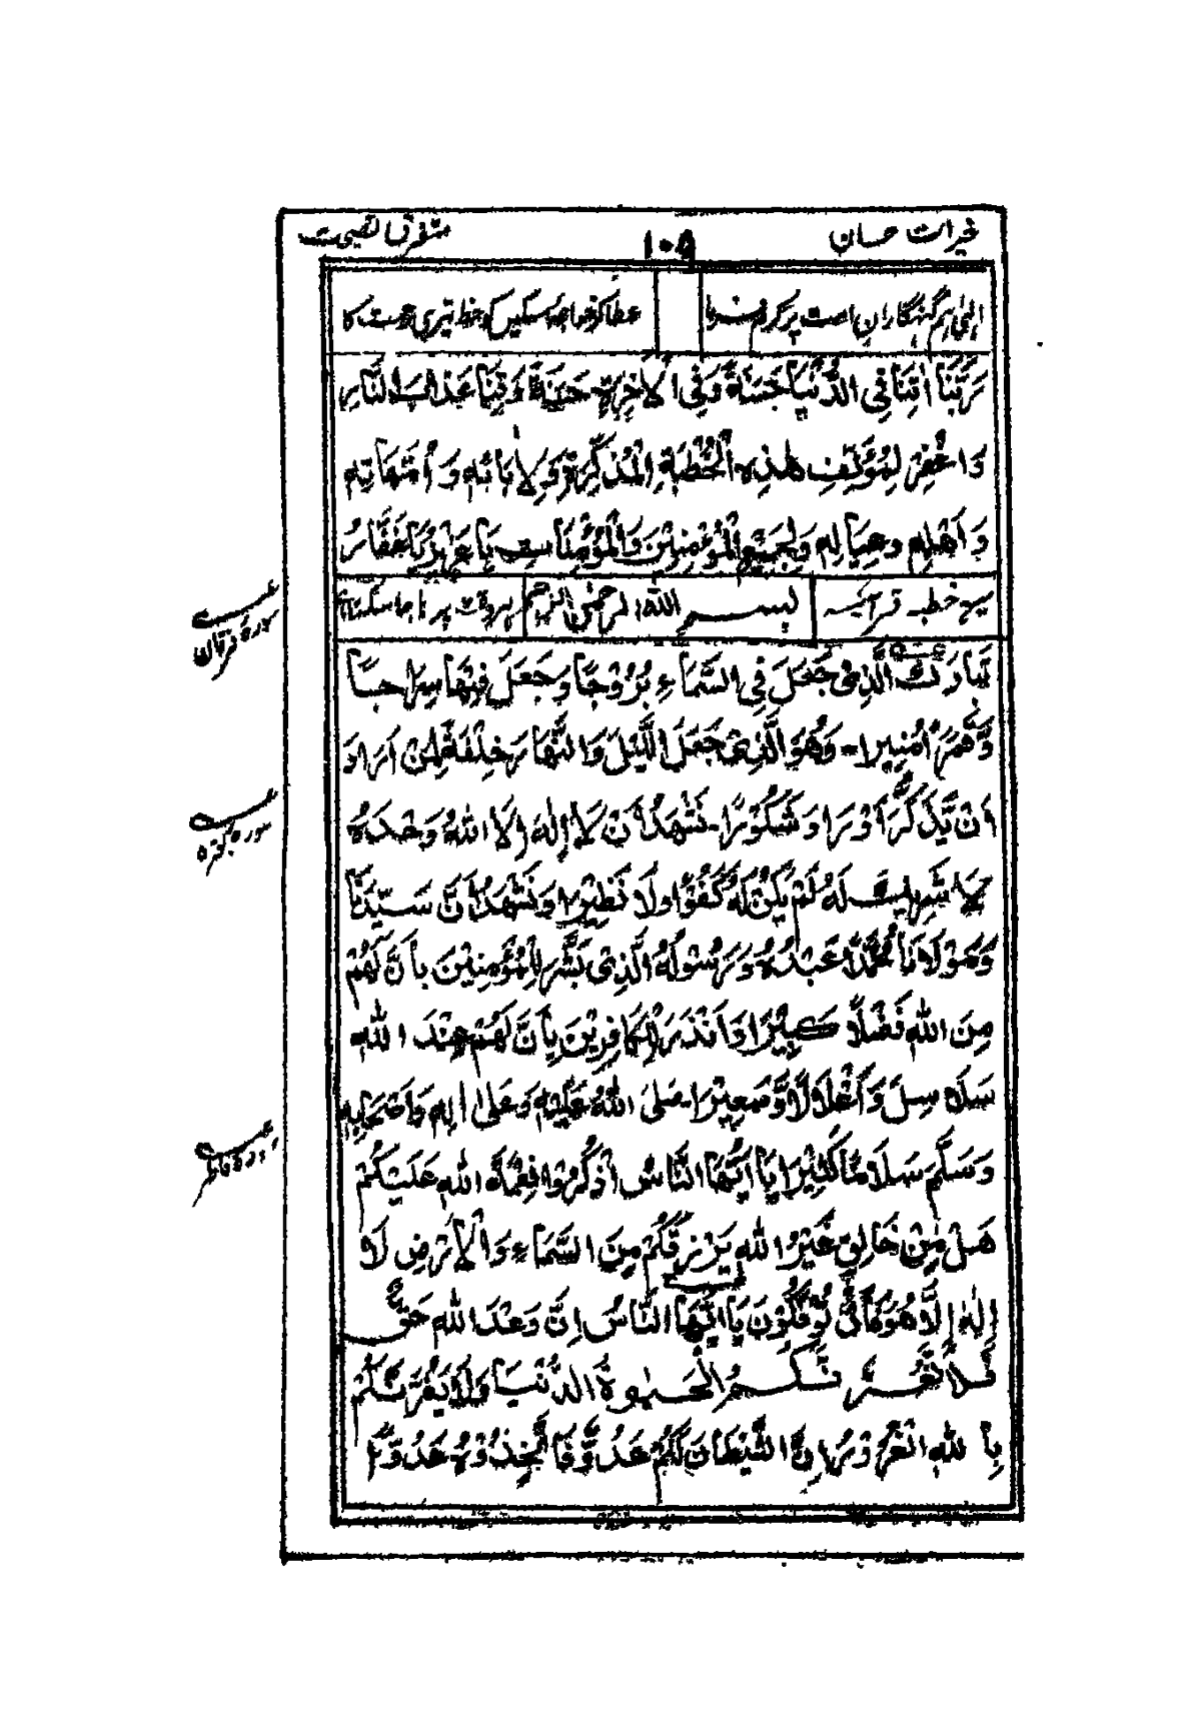 خیرات حسان
۱۰۵
متفرق نصیحت
الٰہی ہم گنہگاران امت پر کرم فرما
عطا کر خواجہ مسکیں کو خط تیری رحمت کا
رَبَّنَا اٰتِنَا فِی الدُّنْیَا حَسَنَةً وَّفِی الْاٰخِرَةِ حَسَنَةً وَّقِنَا عَذَابَ النَّارِ
وَاغْفِرْ لِمُؤَلِّفِ هٰذِهِ الْخُطْبَةِ الْمُذَکِّرَةِ وَلِاٰبَائِهٖ وَاُمَّهَاتِهٖ
وَاَهْلِهٖ وَعِیَالِهٖ وَلِجَمِیْعِ الْمُؤْمِنِیْنَ وَالْمُؤْمِنَاتِ یَا عَزِیْزُ یَا غَفَّارُ
یہ خطبہ قرآنیہ
بِسْمِ اللّٰهِ الرَّحْمٰنِ الرَّحِیْمِ
ہر وقت پڑھا جا سکتا ہے
تَبَارَكَ الَّذِیْ جَعَلَ فِی السَّمَاءِ بُرُوْجًا وَجَعَلَ فِیْهَا سِرَاجًا
وَّقَمَرًا مُّنِیْرًا۔ وَهُوَ الَّذِیْ جَعَلَ اللَّیْلَ وَالنَّهَارَ خِلْفَةً لِّمَنْ اَرَادَ
اَنْ یَّذَّكَّرَ اَوْ اَرَادَ شُكُوْرًا۔ نَشْهَدُ اَنْ لَّا اِلٰهَ اِلَّا اللّٰهُ وَحْدَهٗ
لَا شَرِیْكَ لَهٗ لَمْ یَكُنْ لَّهٗ كُفُوًا وَلَا نَظِیْرًا وَنَشْهَدُ اَنَّ سَیِّدَنَا
وَمَوْلَانَا مُحَمَّدًا عَبْدُهٗ وَرَسُوْلُهُ الَّذِیْ بَشَّرَ لِلْمُؤْمِنِیْنَ بِاَنَّ لَهُمْ
مِنَ اللّٰهِ فَضْلًا كَبِیْرًا وَاَنْذَرَ لِلْكَافِرِیْنَ بِاَنَّ لَهُمْ عِنْدَ اللّٰهِ
سَلَاسِلَ وَاَغْلَالًا وَّسَعِیْرًا۔ صَلَّی اللّٰهُ عَلَیْهِ وَعَلٰی اٰلِهٖ وَاَصْحَابِهٖ
وَسَلَّمَ سَلَامًا كَثِیْرًا یَا اَیُّهَا النَّاسُ اذْكُرُوْا نِعْمَةَ اللّٰهِ عَلَیْكُمْ
هَلْ مِنْ خَالِقٍ غَیْرُ اللّٰهِ یَرْزُقُكُمْ مِنَ السَّمَاءِ وَالْاَرْضِ لَا
اِلٰهَ اِلَّا هُوَ فَاَنّٰی تُؤْفَكُوْنَ یَا اَیُّهَا النَّاسُ اِنَّ وَعْدَ اللّٰهِ حَقٌّ
فَلَا تَغُرَّنَّكُمُ الْحَیٰوةُ الدُّنْیَا وَلَا یَغُرَّنَّكُمْ
بِاللّٰهِ الْغَرُوْرُ اِنَّ الشَّیْطَانَ لَكُمْ عَدُوٌّ فَاتَّخِذُوْهُ عَدُوًّا
سورۂ فرقان
سورہ بقرہ
سورۂ فاطر